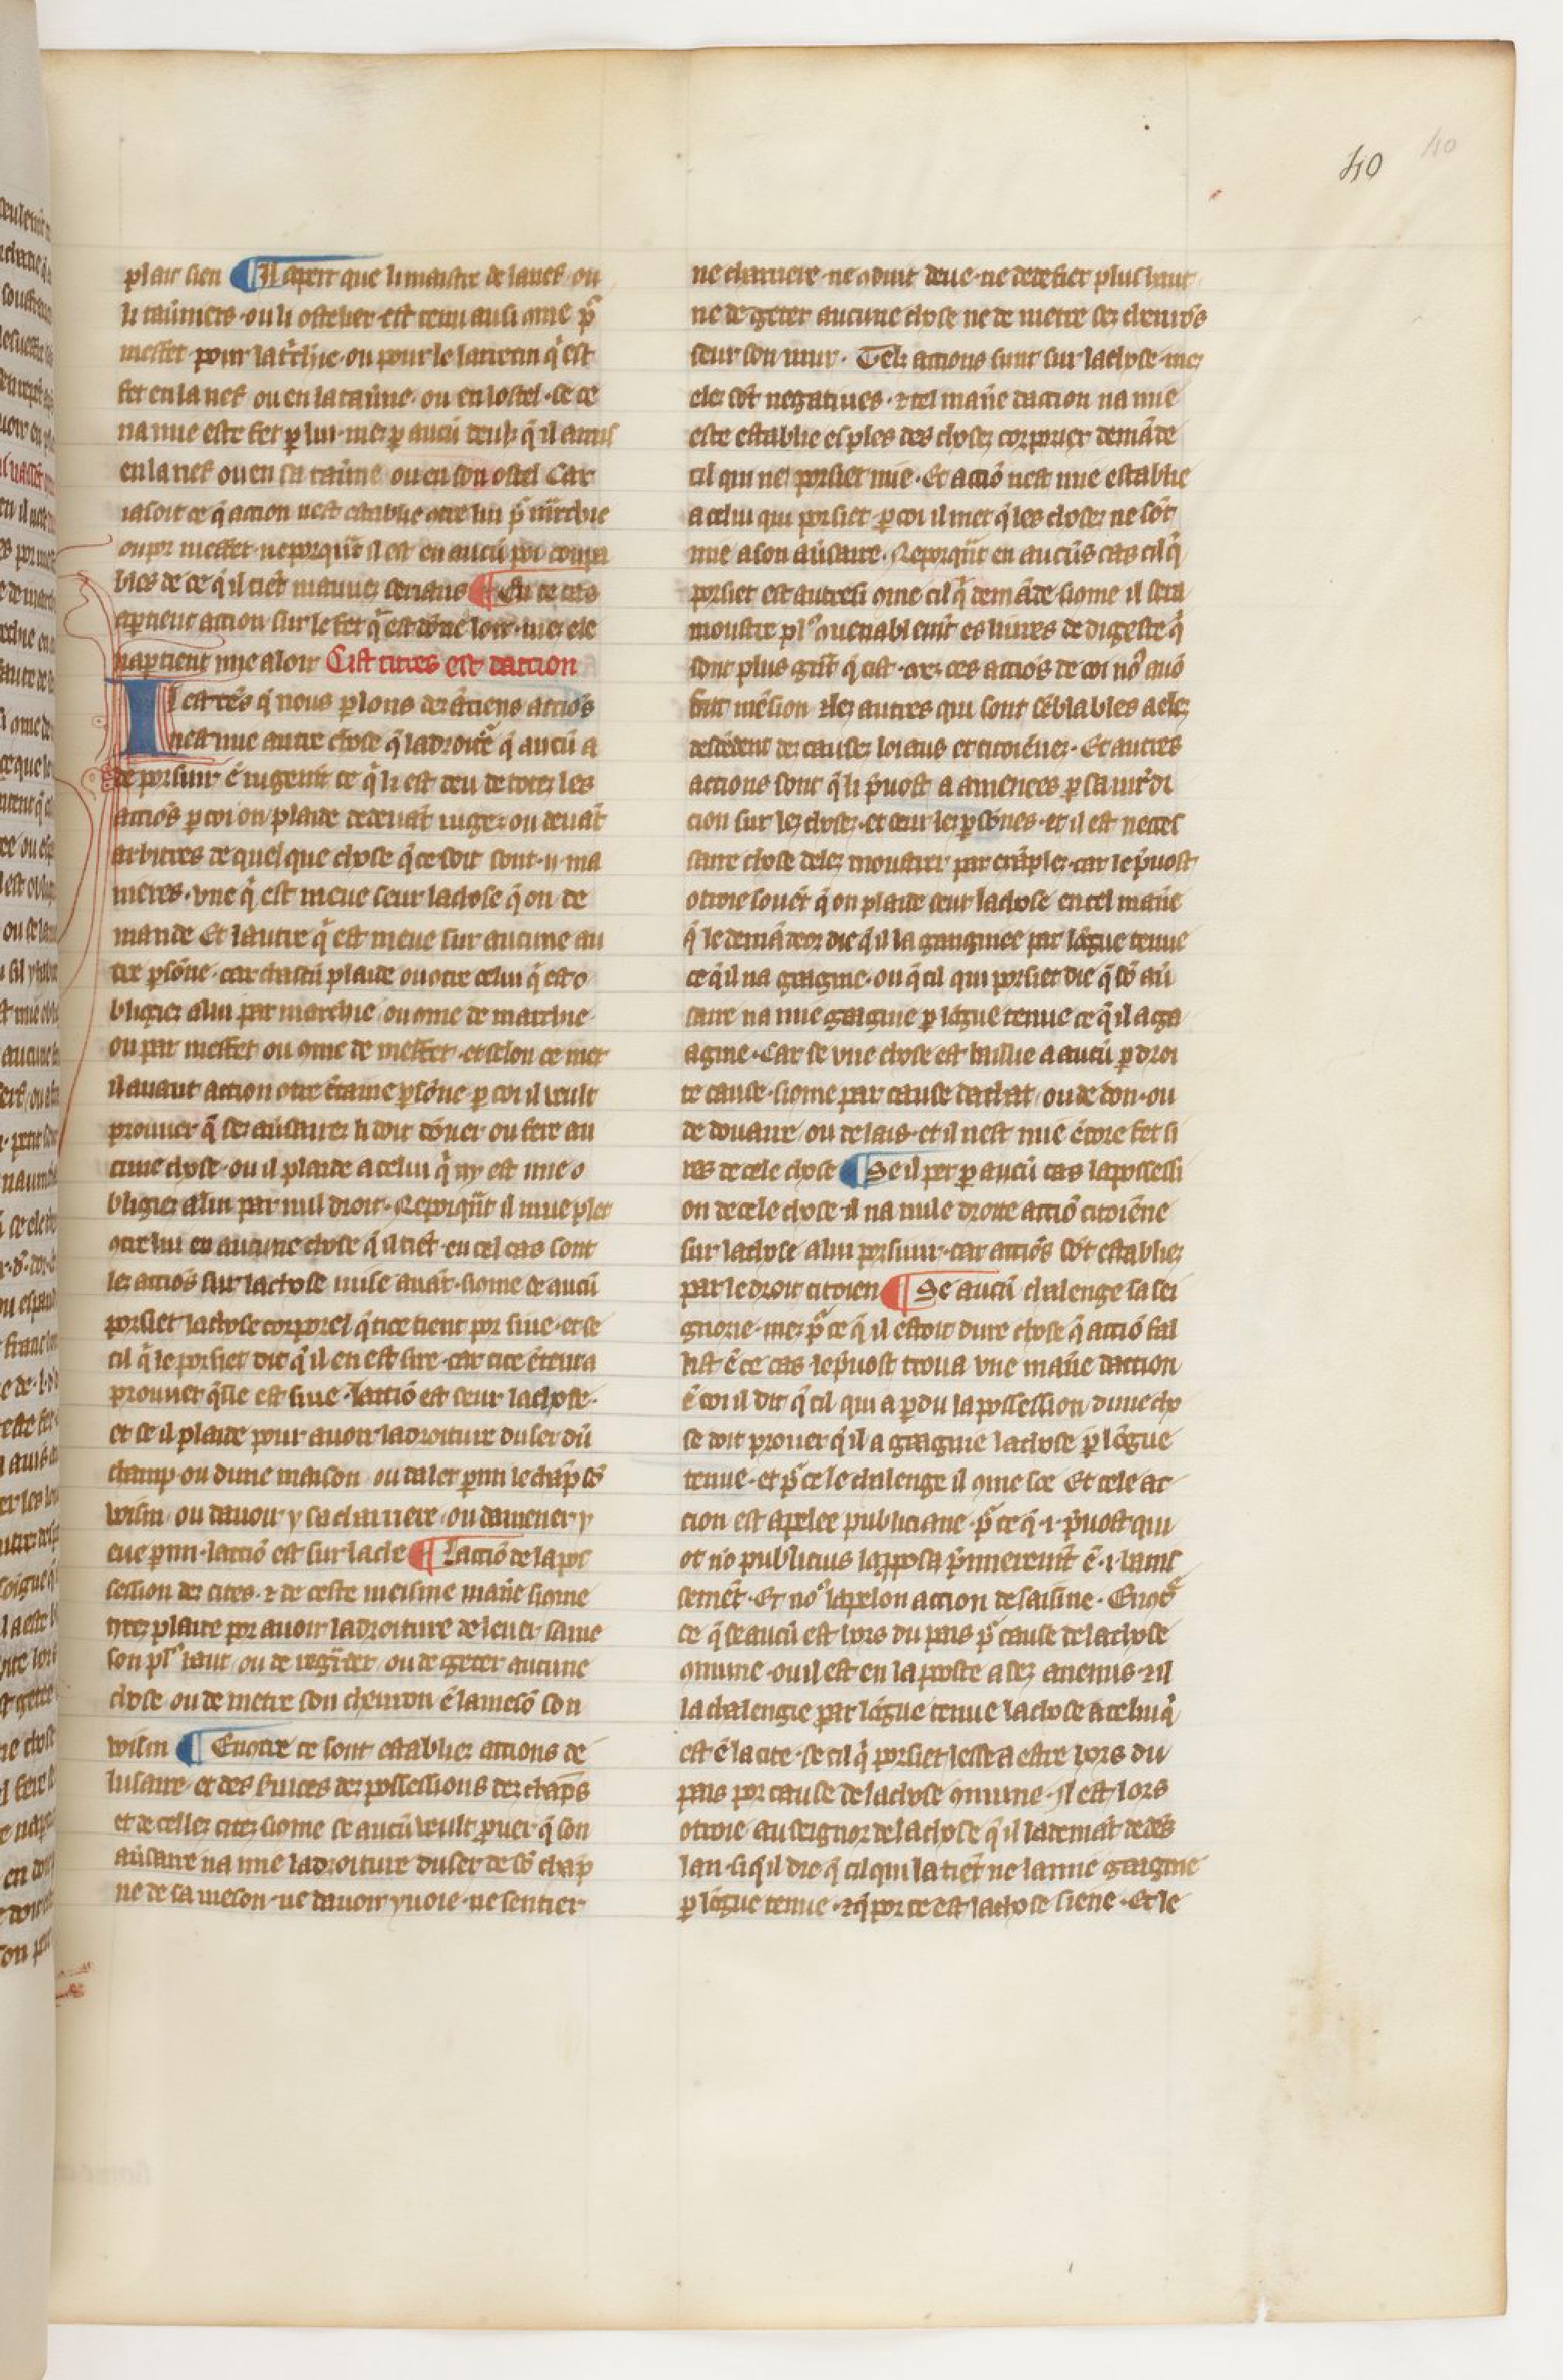 40
40
plait sien ¶ Il apert que li maistre de la nef ou
li tau̾niers · ou li ostelier est tenu ausi ꝯme pͬ
meffet pour la t͛chie · ou pour le larrecin q̾ est
fet en la nef ou en la tau̾ne · ou en lostel · se ce
na mie este fet ꝑ lui · mes ꝑ aucū deuls q̄ il a mis
en la nef ou en sa tau̾ne ou en son ostel Car
ia soit ce q̄ action nest establie ꝯtre lui pͬ
ou por meffet · neporqūt il est en aucū poi coupa
bles de ce q̄ il tiēt mauues serians ¶ En ce cas
apartient action sur le fet q̾ est dōnee loir · mes ele
napartient mie a loir Cist titres est daction
Il est tēs q̄ nous ꝑlons des āciens actiōs
nest mie autre chose q̄ la droitͤ q̄ aucū a
de porsuir ē iugemt ce q̄ li est deu de totes les
actiōs ꝑ coi on plaide de deuāt iuges ou deuāt
arbitres de quel que chose q̄ ce soit sont ·ij· ma
nieres · vne q̄ est meue seur la chose q̄ on de
mande Et lautre q̄ est meue sur aucune au
tre ꝑsōne · car chascū plaide ou ꝯtre celui q̄ est o
bligies a lui par marchie · ou ꝯme de marchie
ou par meffet ou ꝯme de meffet · et selon ce met
il auant action ꝯtre c̾taine ꝑsōne · ꝑ coi il veult
prouuer q̄ ses au̾saires li doit dōner ou fere au
cune chose · ou il plaide a celui q̄ ny est mie o
bligies a lui par nul droit · Neporqūt il mue plet
ꝯtre lui en aucune chose q̄ il tiēt · en cel cas sont
les actiōs sur la chose mise auāt · si ꝯme se aucū
porsiet la chose corporel q̄ tice tient por siue · et se
cil q̄ le porsiet dit q̄ il en est sire · car tice ētent a
prouuer q̄lle est siue · lactiō est seur la chose ·
et se il plaide pour auoir la droiture duser dū
champ · ou dune maison · ou daler ꝑ mi le chāp sō
voisin · ou dauoir y sa charriere · ou damener y
eue ꝑ mi · lactiō est sur la cle ¶ Lactiō de la pos
session des cites · ⁊ de ceste meisme mañe si ꝯme
titez plaide por auoir la droiture de leuer sa me
son plꝰ haut · ou de reg͛der · ou de geter aucune
chose ou de metre son cheuron ē la mesō son
voisin ¶ Encore ce sont establies actions de
lusaire · et des suices des possessions des chāps
et de celles citez si ꝯme se aucū veult ꝓuer q̄ son
au̾saire na mie la droiture duser de sō chāp
ne de sa meson · ne dauoir y voie · ne sentier
ne charriere · ne ꝯduit deue · ne de defier plus haut
ne de geter aucune chose ne de metre sez cheurōs
seur son mur · Tels actions sunt sur la chose · mes
eles sōt negatiues · ⁊ tel mañe daction na mie
este establie es ples des choses corpores demāde
cil qui nel porsiet mie · Et actiō nest mie establie
a celui qui porsiet · ꝑ coi il met q̄ les choses ne sōt
mie a son au̾saire · Neporqūt en aucūs cas cil q̄
porsiet est autresi ꝯme cil q̄ demāde si ꝯme il sera
moustre plꝰ ꝯuenablemt es liures de digeste q̄
sont plus g̾nt q̄ cist · ces actiōs de coi noꝰ auō
fait mēsion · ⁊ les autres qui sont sēblables a eles
descēdent des causes loiaus et citoiēnes · Et autres
actions sont q̄ li p̾uost a amenees ꝑ sa iurͥdi
cion sur lez choses · et seur les ꝑsōnes · et il est neces
saire chose deles moustrer par exāples · car le p̾uost
otroie souēt q̄ on plaide seur la chose en tel mañe
q̄ le demādeor die q̄ il la gaaignee par lōgue tenue
ce q̄ il na gaagnie · ou q̄ cil qui porsiet die q̄ sō au̾
saire na mie gaagnie ꝑ lōgue tenue ce q̄ il a ga
agnie · Car se vne chose est baillie a aucū ꝑ droi
te cause · si ꝯme par cause dachat · ou de don · ou
de douaire · ou de lais · et il nest mie ēcore fet si
res de cele chose ¶ Se il pert ꝑ aucū cas la possessi
on de cele chose · il na nule droite actiō citoiēne
sur la chose a lui porsuir · car actiōs sōt establies
par le droit citoien ¶ Se aucū chalenge sa sei
gnorie · mes pͬ ce q̄ il estoit dure chose q̄ actiō fal
list ē ce cas · le p̾uost troua vne mañe daction
ē coi il dit q̄ cil qui a ꝑdu la possession dune cho
se doit prouer q̄ il a gaagnie la chose ꝑ lōgue
tenue · et pͬ ce le chalenge il ꝯme soe Et cele ac
cion est apelee publiciane · pͬ ce q̄ ·i· p̾uost qui
ot nō publicius la pposa p̾mierement ē ·i· ians
semēt · Et noꝰ lapelon action de saisine · Encorͤ
ce q̄ se aucū est hors du pais pͬ cause de la chose
ꝯmune · ou il est en la poste a sez anemis · ⁊ il
la chalengie par lōgue tenue la chose a celui q̄
est ē la cite · se cil q̄ porsiet lesse a estre hors du
pais por cause de la chose ꝯmune · Il est lors
otroie au seignor de la chose q̄ il la demāt dedēs
lan · si q̄ il die q̄ cil qui la tiēt ne la mie gaaignie
ꝑ lōgue tenue · ⁊ q̄ por ce est la chose siene · Et le